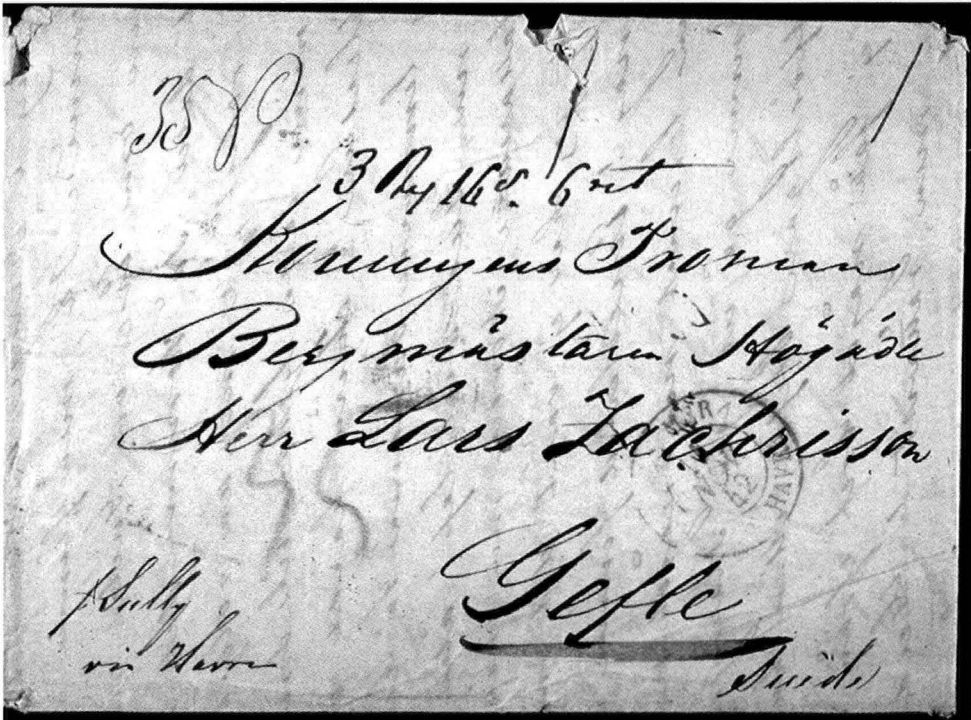 35
3 16 s. 6 rst
Konungens Troman
Bergmästaren Högädle
Herr Lars Zachrisson
Gefle
Suède
p Sully
via Havre
HAV